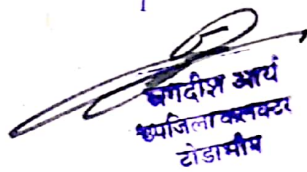 1
जगदीश आर्य
उपजिला कलक्टर
टोडाभीम